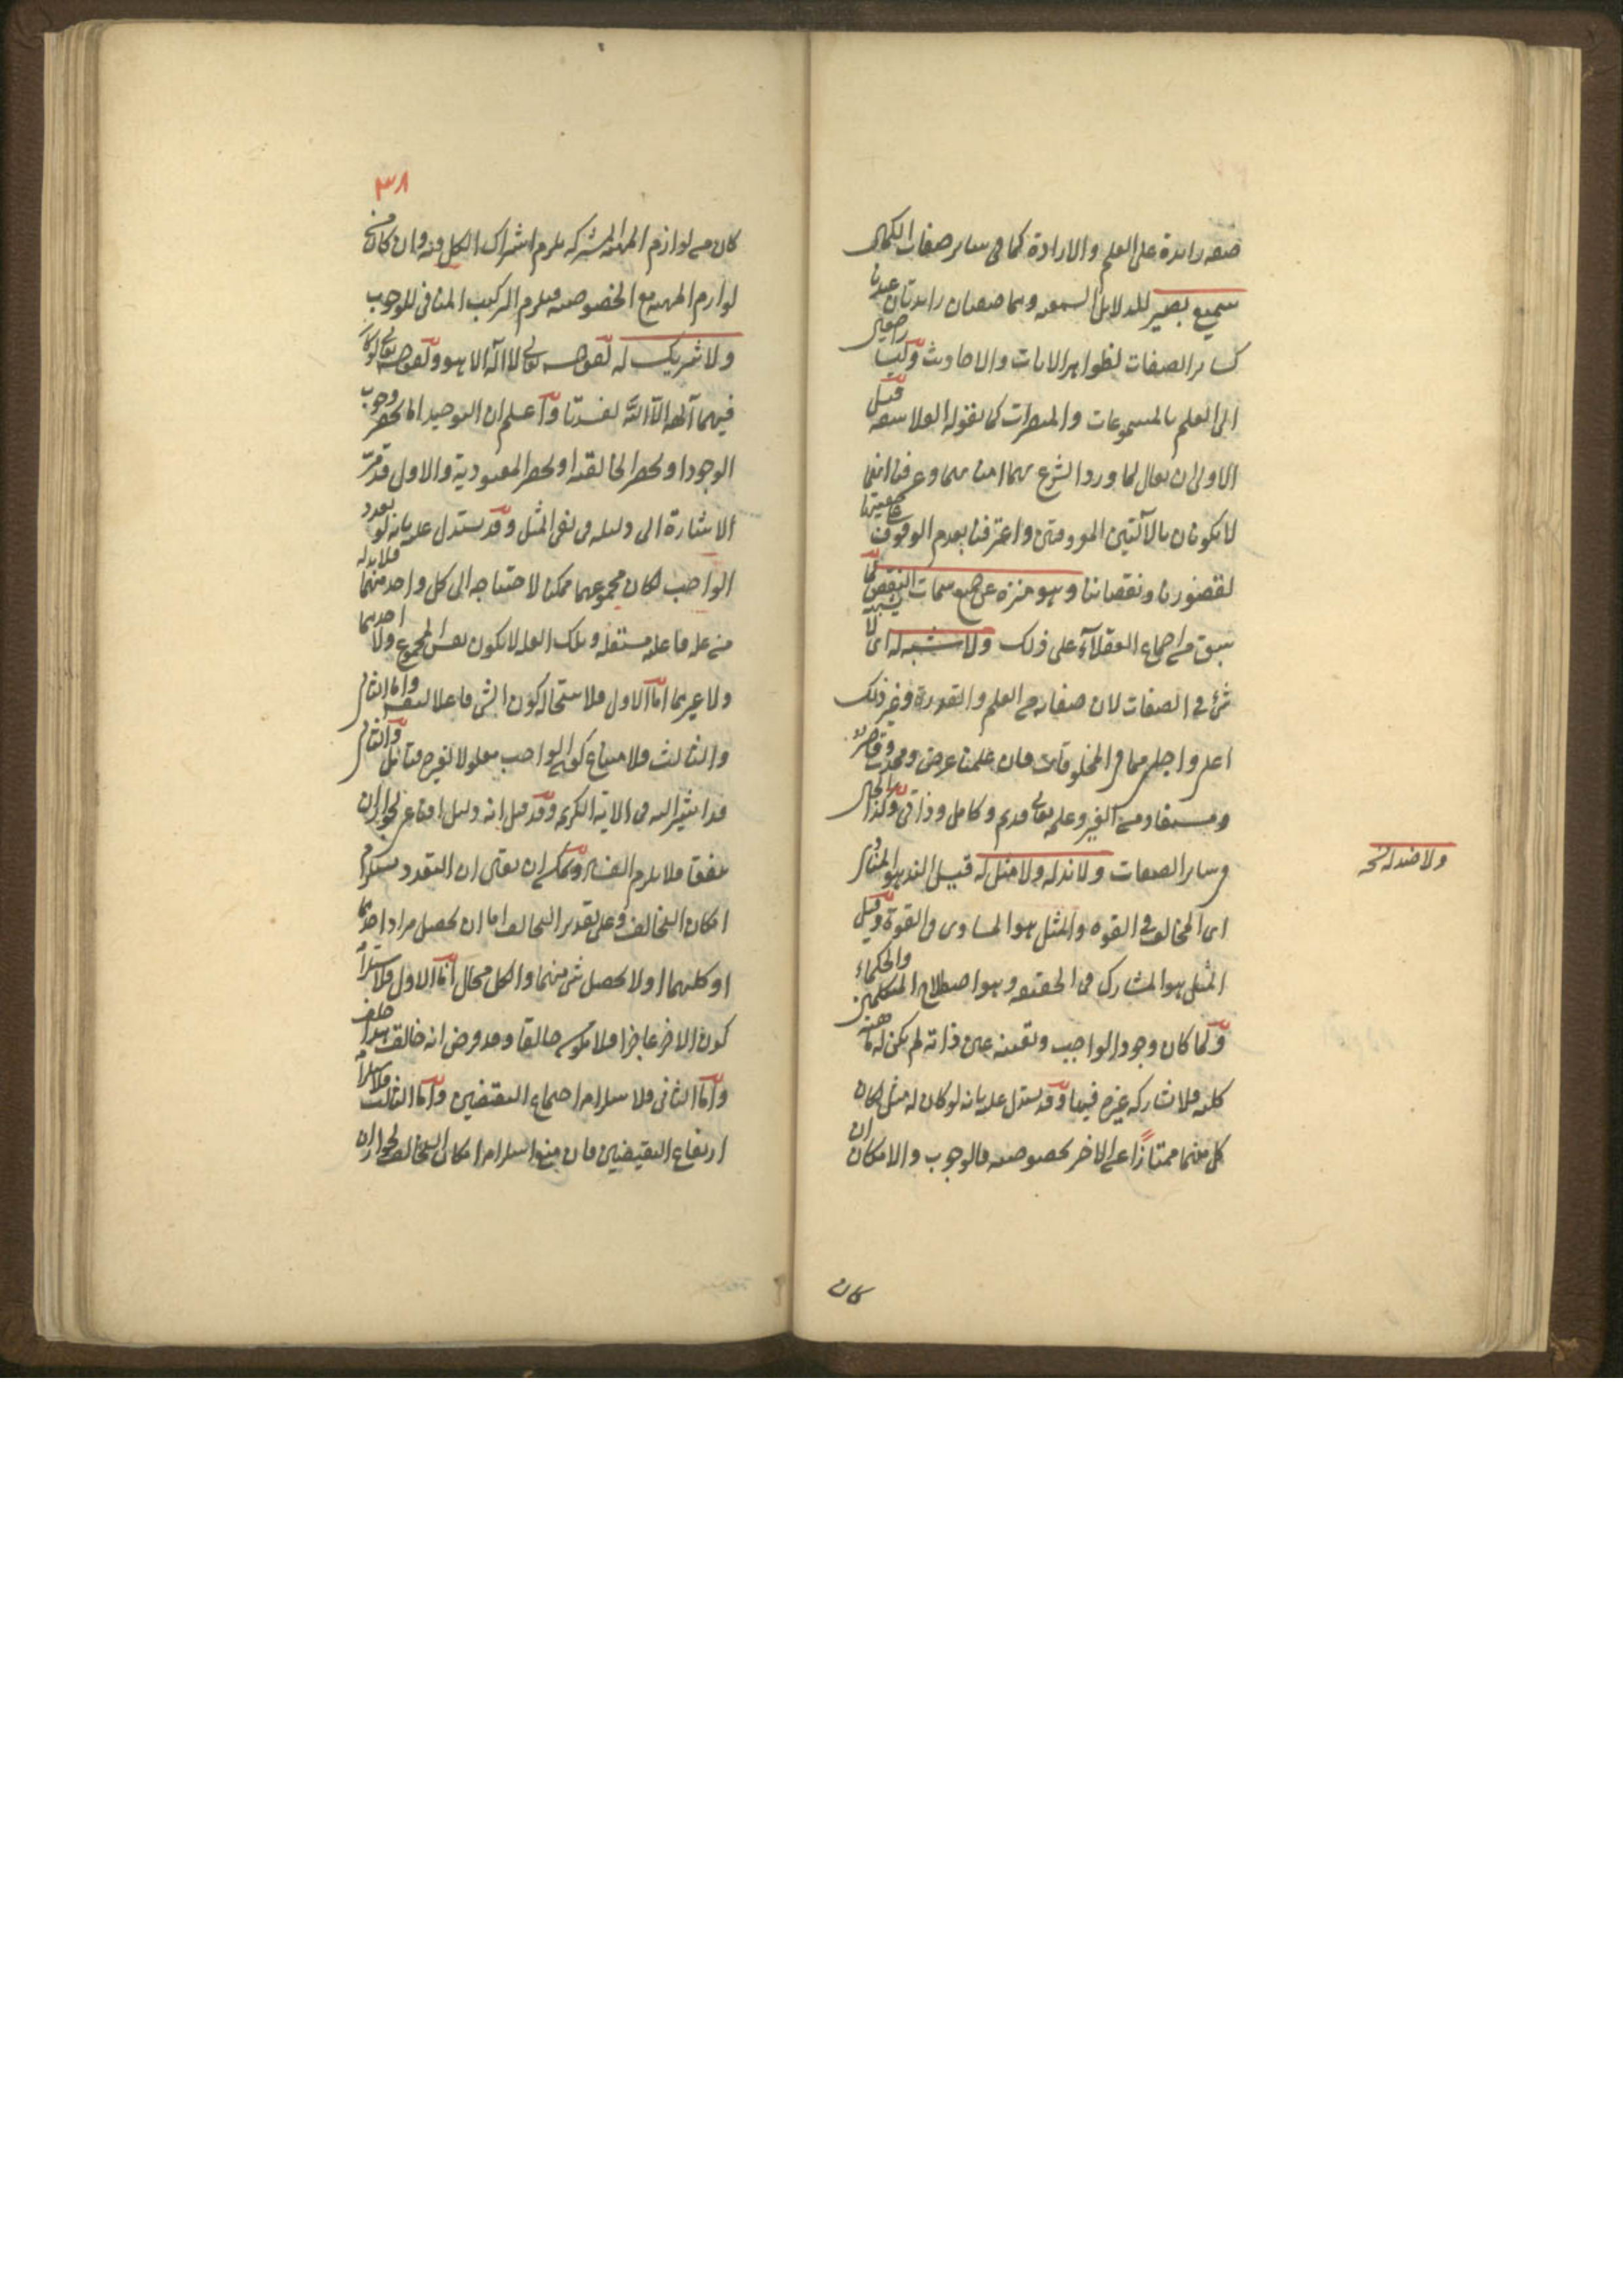 صفة زايدة على العلم والارادة كما فى ساير صفات الكمال
سميع بصير للدلايل السمعية وهما صفتان زايدتان عندنا
كساير الصفات لظواهر الايات والاحاديث وليستا راجعتين
الى العلم بالمسموعات والمبصرات كما تقوله الفلاسفة قيل
الاولى ان يقال لما ورد الشرع بهما امنا بهما وعرفنا انهما
لا يكونان بالآلتين المعروفتين واعترفنا بعدم الوقوف على حقيقتهما
لقصورنا ونقصاننا وهو منزه عن جميع سمات النقص لما
سبق من اجماع العقلاء على ذلك ولا شبه له اى لا يشبهه
شئ فى الصفات لان صفاته من العلم والقدرة وغير ذلك
اعلى واجل مما فى المخلوقات فان علمنا عرض ومحدث وقاصر
ومستفاد من الغير وعلمه تعالى قديم وكامل وذاتى وكذا الحال
فى ساير الصفات ولا ند له ولا مثل له قيل الند هو المناوى
ولا ضد له نسخه
اى المخالف فى القوة والمثل هو المساوى فى القوة وقيل
المثل هو المشارك فى الحقيقة وهو اصطلاح المتكلمين والحكماء
ولما كان وجود الواجب وتعينه عين ذاته لم يكن له ماهية
كلية فلا يشاركه غيره فيها وقد يستدل عليه بانه لو كان له مثل لكان
كل منهما ممتازا عن الاخر بخصوصية فالوجوب والامكان ان
كان
٣٨
كان من لوازم المهية المشتركة يلزم اشتراك الكل فيه وان كان من
لوازم المهية مع الخصوصية فيلزم التركيب المنافى للوجوب
ولا شريك له لقوله تعالى لا اله الا هو ولقوله تعالى لو كان
فيهما آلهة الا الله لفسدتا واعلم ان التوحيد اما بحصر وجوب
الوجود او بحصر الخالقية او بحصر المعبودية والاول قد مر
الاشارة الى دليله فى نفى المثل وقد يستدل عليه بانه لو تعدد
الواجب لكان مجموعهما ممكنا لاحتياجه الى كل واحد منهما فلا بد له
من علة فاعلة مستقلة وتلك العلة لا يكون نفس المجموع ولا احدهما
ولا غيرهما اما الاول فلاستحالة كون الشئ فاعلا لنفسه واما الثانى
والثالث فلامتناع كون الواجب معلولا لغيره فتامل والثانى
قد اشير اليه فى الاية الكريمة وقد قيل انه دليل اقناعى لجواز ان
يتفقا فلا يلزم الفساد ويمكن ان يقال ان التعدد يستلزم
امكان التخالف وعلى تقدير التخالف اما ان يحصل مراد احدهما
او كليهما او لا يحصل شئ منهما والكل محال اما الاول فلاستلزامه
كون الاخر عاجزا فلا يكون خالقا وقد فرض انه خالق هذا خلف
واما الثانى فلاستلزامه اجتماع النقيضين واما الثالث فلاستلزامه
ارتفاع النقيضين فان منع استلزامه امكان التخالف لجواز ان